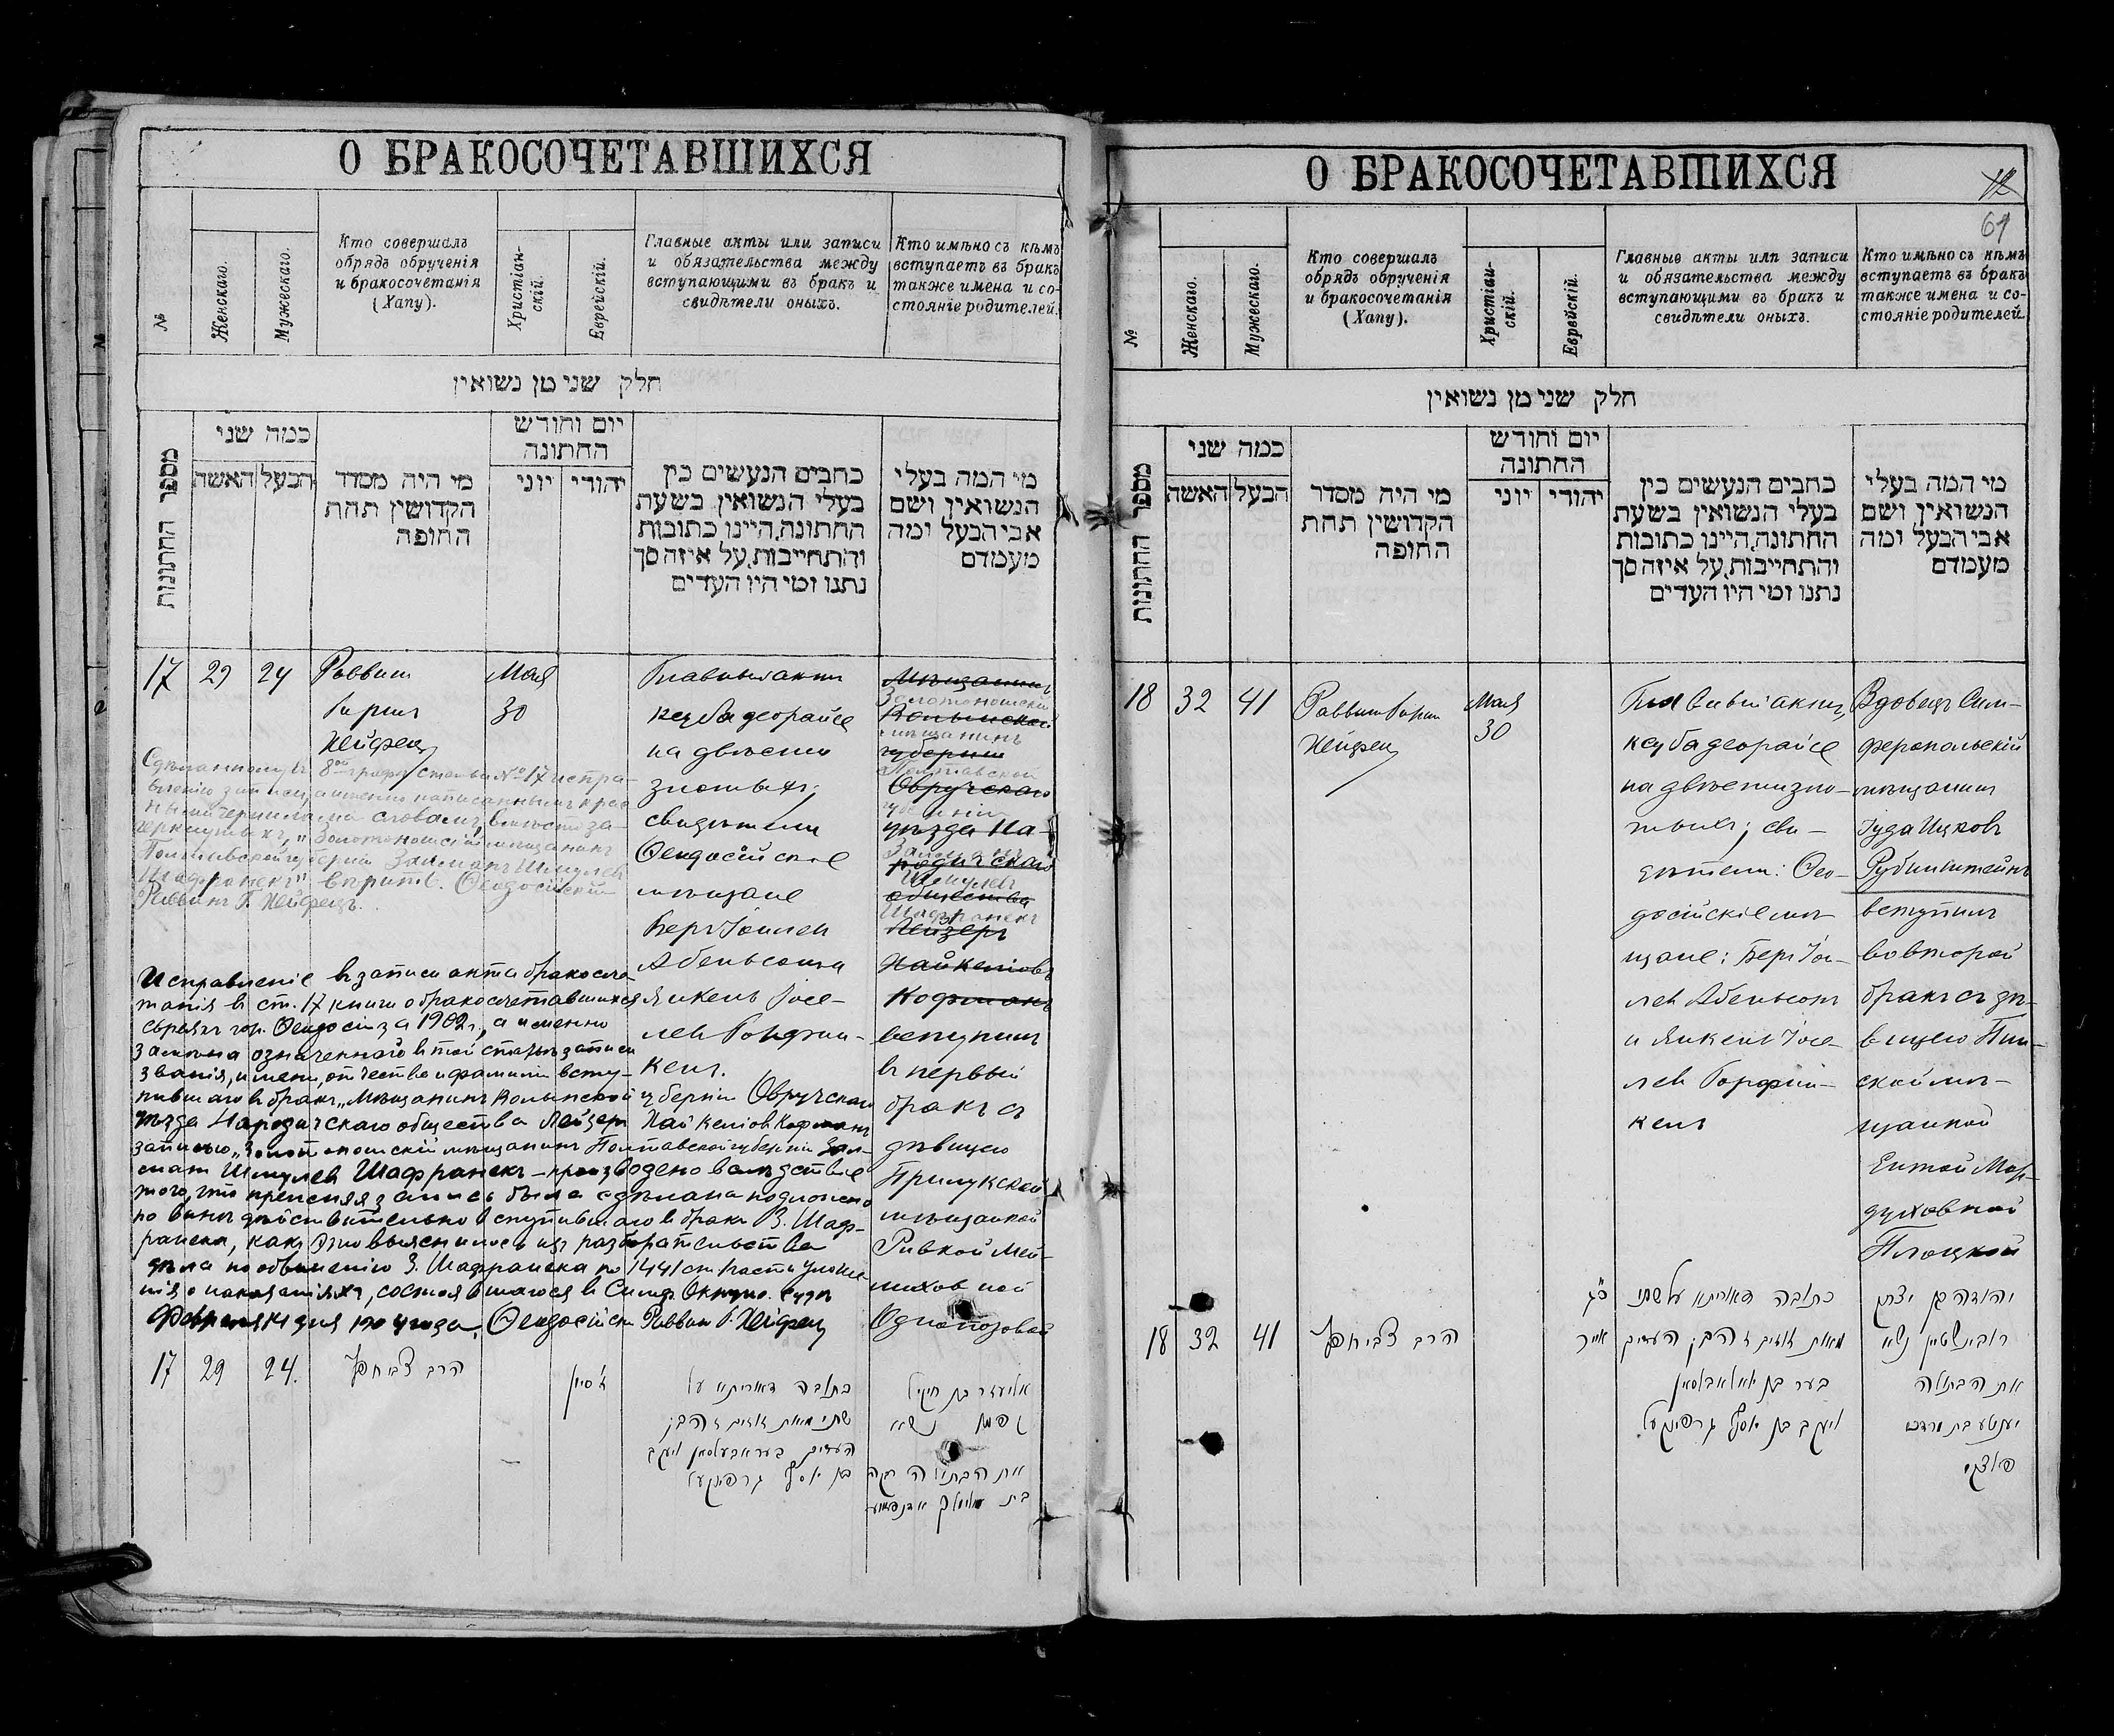 О БРАКОСОЧЕТАВШИХСЯ
№
Женскаго.
Мужескаго.
Кто совершалъ
обрядъ обрученія
и бракосочетанія
(Хапу).
Христіан-
скій.
Еврейскій.
Главные акты или записи
и обязательства между
вступающими въ бракъ и
свидѣтели оныхъ.
Кто имѣно съ кѣмъ
вступаетъ въ бракъ
также имена и со-
стояніе родителей.
חלק שני מן נשואין
מספר החתונות
כמה שני
האשה
הבעל
מי היה מסדר
הקדושין תחת
החופה
יום וחודש
החתונה
יוני
יהודי
כתבים הנעשים בין
בעלי הנשואין בשעת
החתונה היינו כתובות
והתחייבות על איזה סך
נתנו ומי היו העדים
מי המה בעלי
הנשואין ושם
אבי הבעל ומה
מעמדם
17
29
24
Раввинъ
Гиршъ
Хейфецъ
Мая
30
Главный актъ
кецба деорайсе
на двѣсти
злотыхъ;
свидѣтели
Ѳеодосійскіе
мѣщане
Беръ Іоилев
Абельсонъ
Янкель Іосе-
лев Горфин-
кель.
Мѣщанинъ
Золотоношскій
Волынской
мѣщанинъ
губерніи
Полтавской
Овручскаго
губерніи
уѣзда На-
Залманъ
родичскаго
Шмулевъ
общества
Шафранекъ
Лейзеръ
Хайкелювъ
Кофманъ
вступилъ
въ первый
бракъ съ
дѣвицею
Прилукской
мѣщанкой
Ривкой Мей-
лиховной
Однопозовой
Сдѣланному въ 8ой графѣ статьи № 17 испра-
вленію записи, а именно написаннымъ крас-
ными чернилами словамъ, вмѣсто за-
черкнутыхъ, "Золотоношскій мѣщанинъ
Полтавской губерніи Залманъ Шмулев
Шафранекъ" вѣрить. Ѳеодосійскій
Раввинъ Г. Хейфецъ.
Исправленіе въ записи акта бракосоче-
танія въ ст. 17 книги о бракосочетавшихся
евреяхъ гор. Ѳеодосіи за 1902 г., а именно
замѣна означеннаго въ той статьѣ записи
званія, имени, отчества и фамиліи всту-
пившаго въ бракъ "Мѣщанинъ Волынской губерніи Овручскаго
уѣзда Народичскаго общества Лейзеръ Хайкелювъ Кофманъ
записью "Золотоношскій мѣщанинъ Полтавской губерніи Зал-
манъ Шмулев Шафранекъ – произведено вслѣдствіе
того, что прежняя запись была сдѣлана подложно
по винѣ дѣйствительно вступившаго въ бракъ З. Шаф-
ранека, какъ это выяснилось изъ разбирательства
дѣла по обвиненію З. Шафранека по 1441 ст. Уложе-
нія о наказаніяхъ, состоявшагося въ Симф. Окружн. Судѣ
Февраля 14 дня 1904 года. Ѳеодосійск. Раввинъ Г. Хейфецъ
17
29
24.
הרב צבי חפץ
סיון
כתובה דאוריתא על
שתי מאות זוזים
העדים בער אבעלסאן
בן יוסף גרפינקעל
נשא
את הבתולה רבקה
О БРАКОСОЧЕТАВШИХСЯ
12
61
№
Женскаго.
Мужескаго.
Кто совершалъ
обрядъ обрученія
и бракосочетанія
(Хапу).
Христіан-
скій.
Еврейскій.
Главные акты или записи
и обязательства между
вступающими въ бракъ и
свидѣтели оныхъ.
Кто имѣно съ кѣмъ
вступаетъ въ бракъ
также имена и со-
стояніе родителей.
חלק שני מן נשואין
מספר החתונות
כמה שני
האשה
הבעל
מי היה מסדר
הקדושין תחת
החופה
יום וחודש
החתונה
יוני
יהודי
כתבים הנעשים בין
בעלי הנשואין בשעת
החתונה היינו כתובות
והתחייבות על איזה סך
נתנו ומי היו העדים
מי המה בעלי
הנשואין ושם
אבי הבעל ומה
מעמדם
18
32
41
Раввинъ Гиршъ
Хейфецъ
Мая
30
Главный актъ,
кецба деорайсе
на двѣсти зло-
тыхъ; сви-
дѣтели: Ѳео-
досійскіе мѣ-
щане: Беръ Іои-
лев Абельсонъ
и Янкель Іосе-
лев Горфин-
кель
Вдовецъ Сим-
феропольскій
мѣщанинъ
Іуда Ицковъ
Рубинштейнъ
вступилъ
во второй
бракъ съ дѣ-
вицею Пин-
ской мѣ-
щанкой
Ентой Мор-
духовной
Плоцкой
18
32
41
הרב צבי חפץ
אייר
כתובה דאוריתא על שתי
מאות זוזים העדים
בער בן יואל אבלסאן
יעקב בן יוסף גרפינקעל
יהודה בן יצחק
רובינשטיין נשא
את הבתולה
יענטע בת מרדכי
פלאצקי